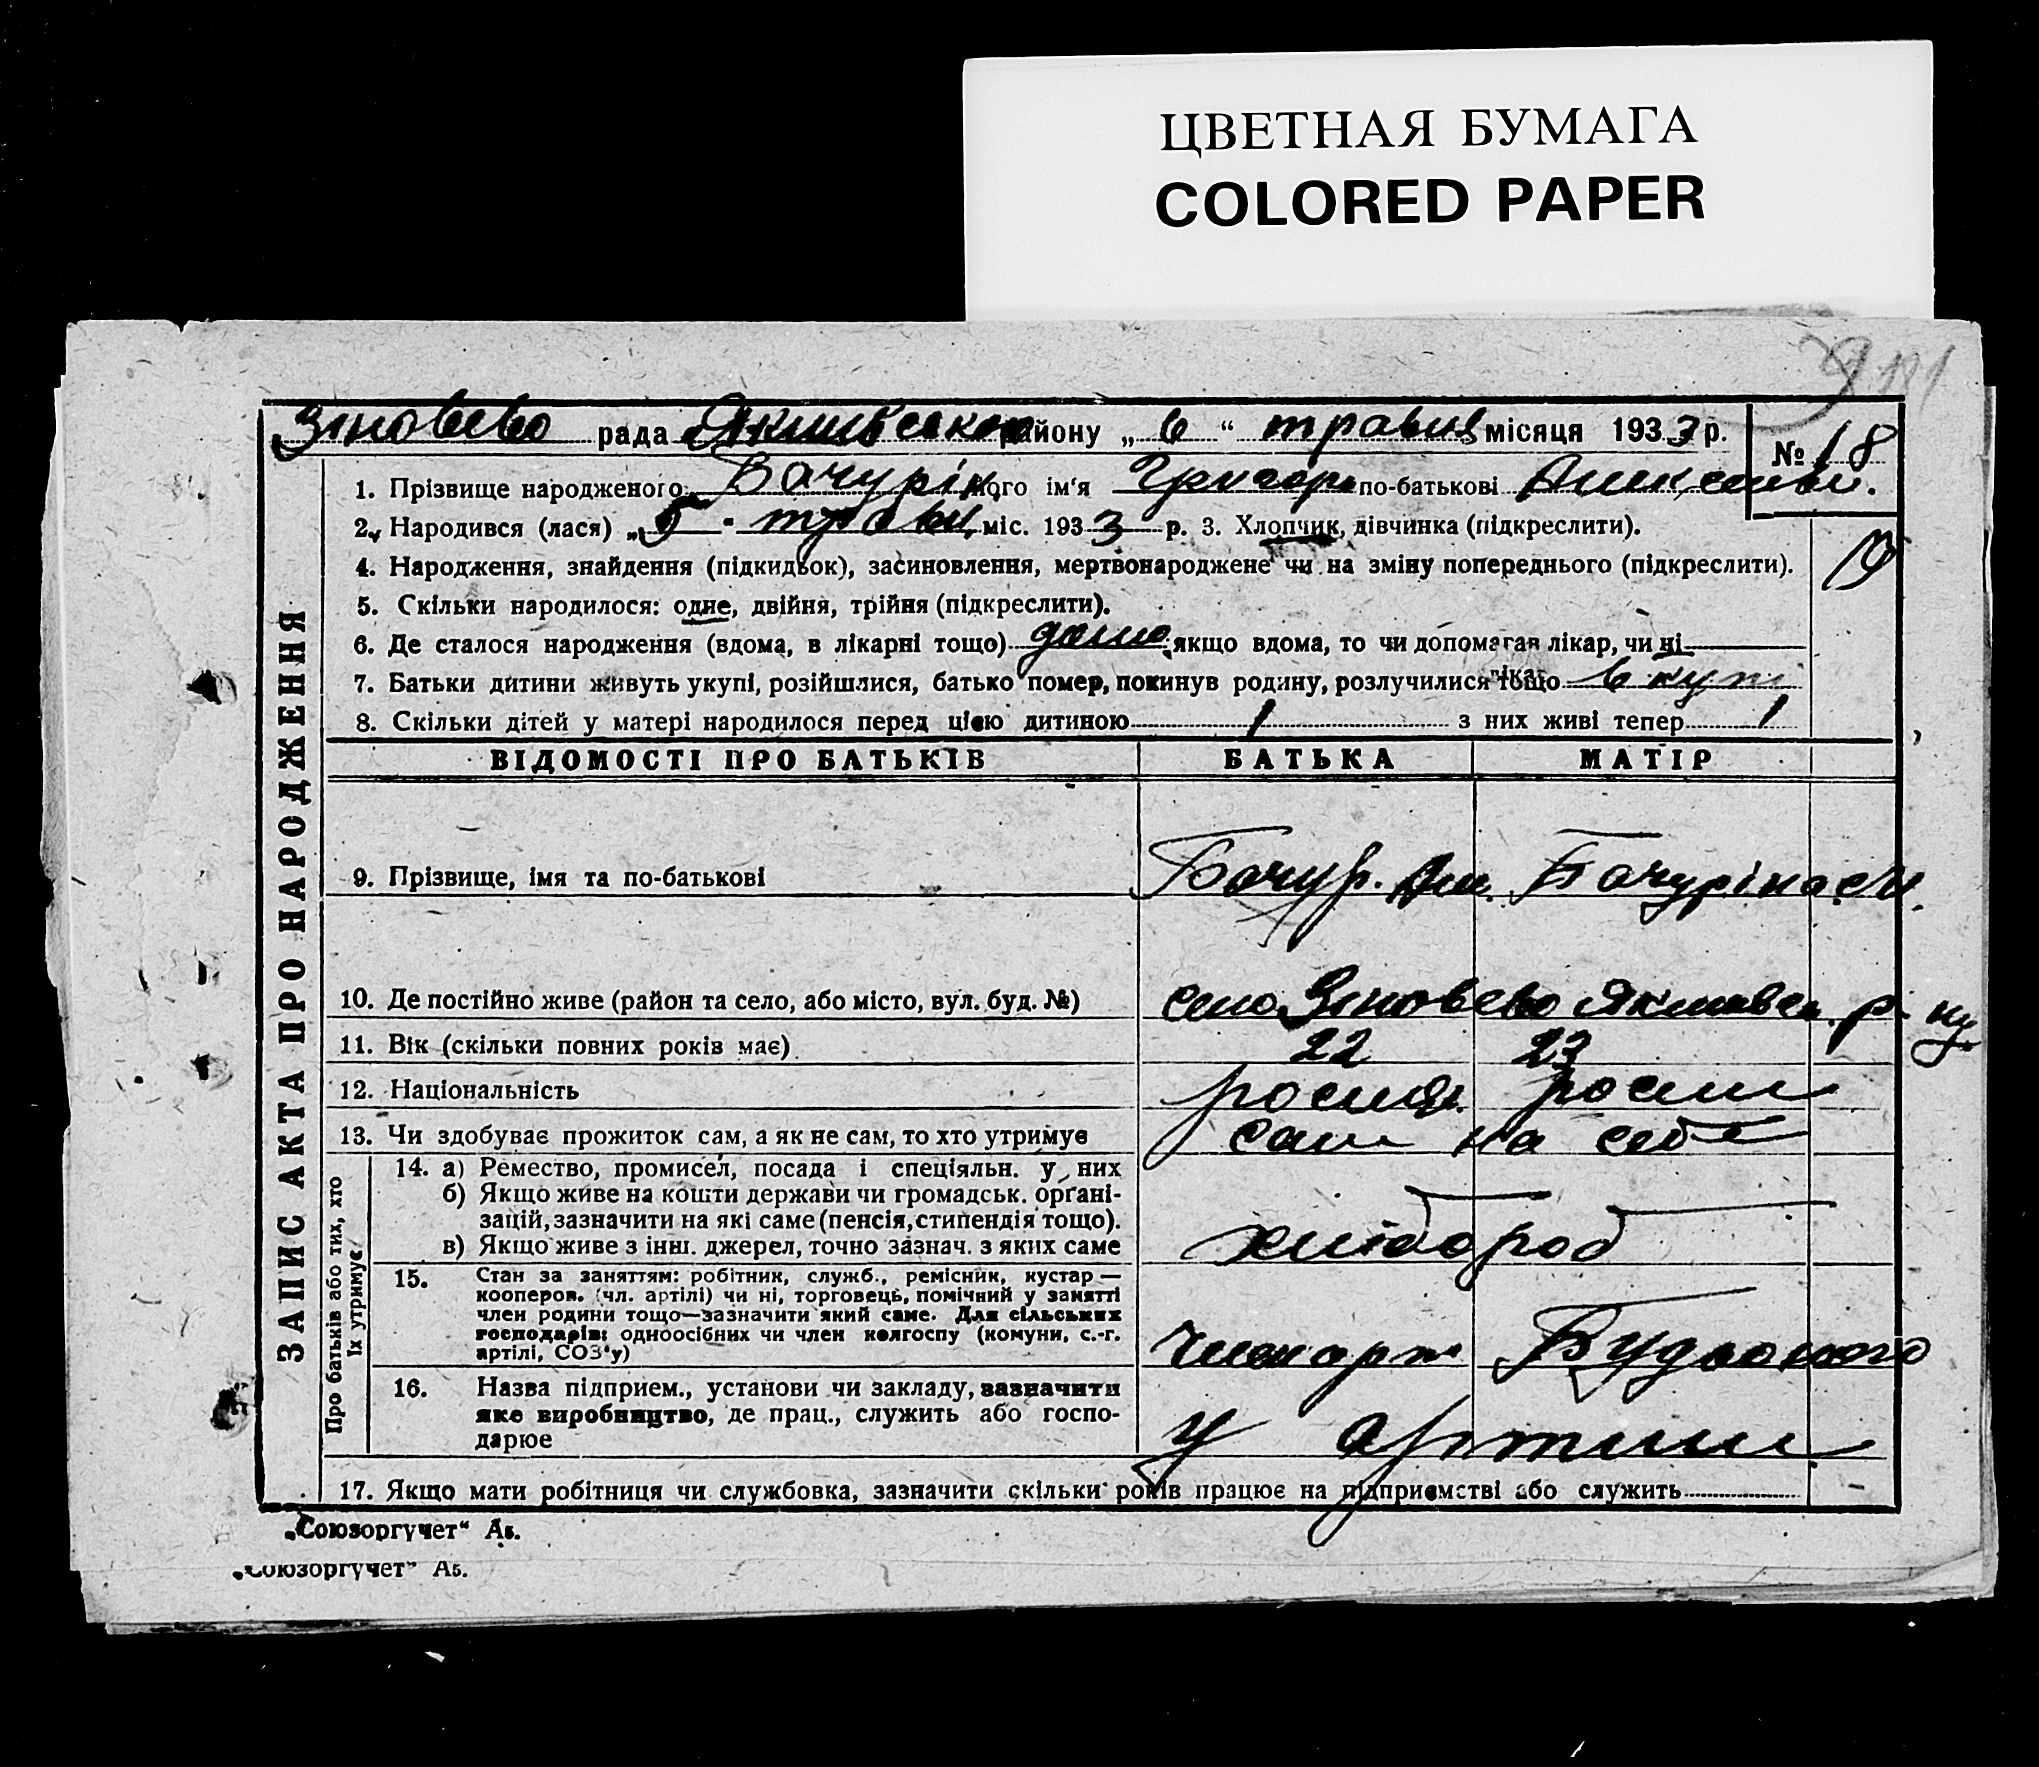 ЦВЕТНАЯ БУМАГА
COLORED PAPER
Зіновєво рада Якимівськог району „ 6 “ травця місяця 1933 р. № 18
1. Прізвище народженого Бачурін його ім‘я Григорі по-батькові
2. Народився (лася) „ 5 " травц міс. 1933 р. 3. Хлопчик, дівчинка (підкреслити).
4. Народження, знайдення (підкидьок), засиновлення, мертвонароджене чи на зміну попереднього (підкреслити).
5. Скільки народилося: одне, двійня, трійня (підкреслити).
6. Де сталося народження (вдома, в лікарні тощо) дома якщо вдома, то чи допомагав лікар, чи ні
7. Батьки дитини живуть укупі, розійшлися, батько помер, покинув родину, розлучилися тощо вкупі
8. Скільки дітей у матері народилося перед цією дитиною 1 з них живі тепер 1
ВІДОМОСТІ ПРО БАТЬКІВ БАТЬКА МАТІР
ЗАПИС АКТА ПРО НАРОДЖЕННЯ
9. Прізвище, імя та по-батькові Бачур. Бачуріна М.
10. Де постійно живе (район та село, або місто, вул. буд. №) село Зіновєво Якимівск. р-ну
11. Вік (скільки повних років має) 22 23
12. Національність росіян росіян
13. Чи здобуває прожиток сам, а як не сам, то хто утримує сам на себе
Про батьків або тих, хто їх утримує
14. а) Ремество, промисел, посада і спеціяльн. у них
б) Якщо живе на кошти держави чи громадськ. органі-
зацій, зазначити на які саме (пенсія, стипендія тощо).
в) Якщо живе з інш. джерел, точно зазнач. з яких саме хлібороб
15. Стан за заняттям: робітник, служб., ремісник, кустар —
кооперов. (чл. артілі) чи ні, торговець, помічний у занятті
член родини тощо—зазначити який саме. Для сільських
господарів: одноосібних чи член колгоспу (комуни, с.-г.
артілі, СОЗ‘у) член арт Будьоного
16. Назва підприєм., установи чи закладу, зазначити
яке виробництво, де прац., служить або госпо-
дарює у артили
17. Якщо мати робітниця чи службовка, зазначити скільки років працює на підприємстві або служить
„Союзоргучет“ Ав.
„Союзоргучет“ Ав.